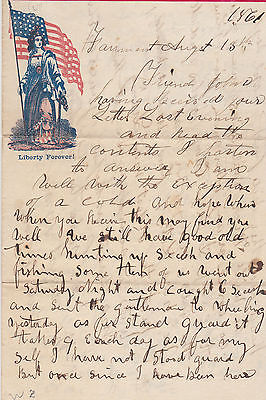 1861
Fairmont August 13th
Friend John
having received your
Letter Last Evening
and Read the
contents I hasten
to answer I am
Liberty Forover!
Well with the Exception
of a cold and hope when
When you this may find you
Well we still have good old
times hunting up Secesh and
fishing some ten of us went out
Saturday Night and caught 6 Secesh
and sent the gentlemen to Wheeling
yesterday as for stand guard it
takes 9 Each day as for my
self I have not stood guard
But once since I have been here